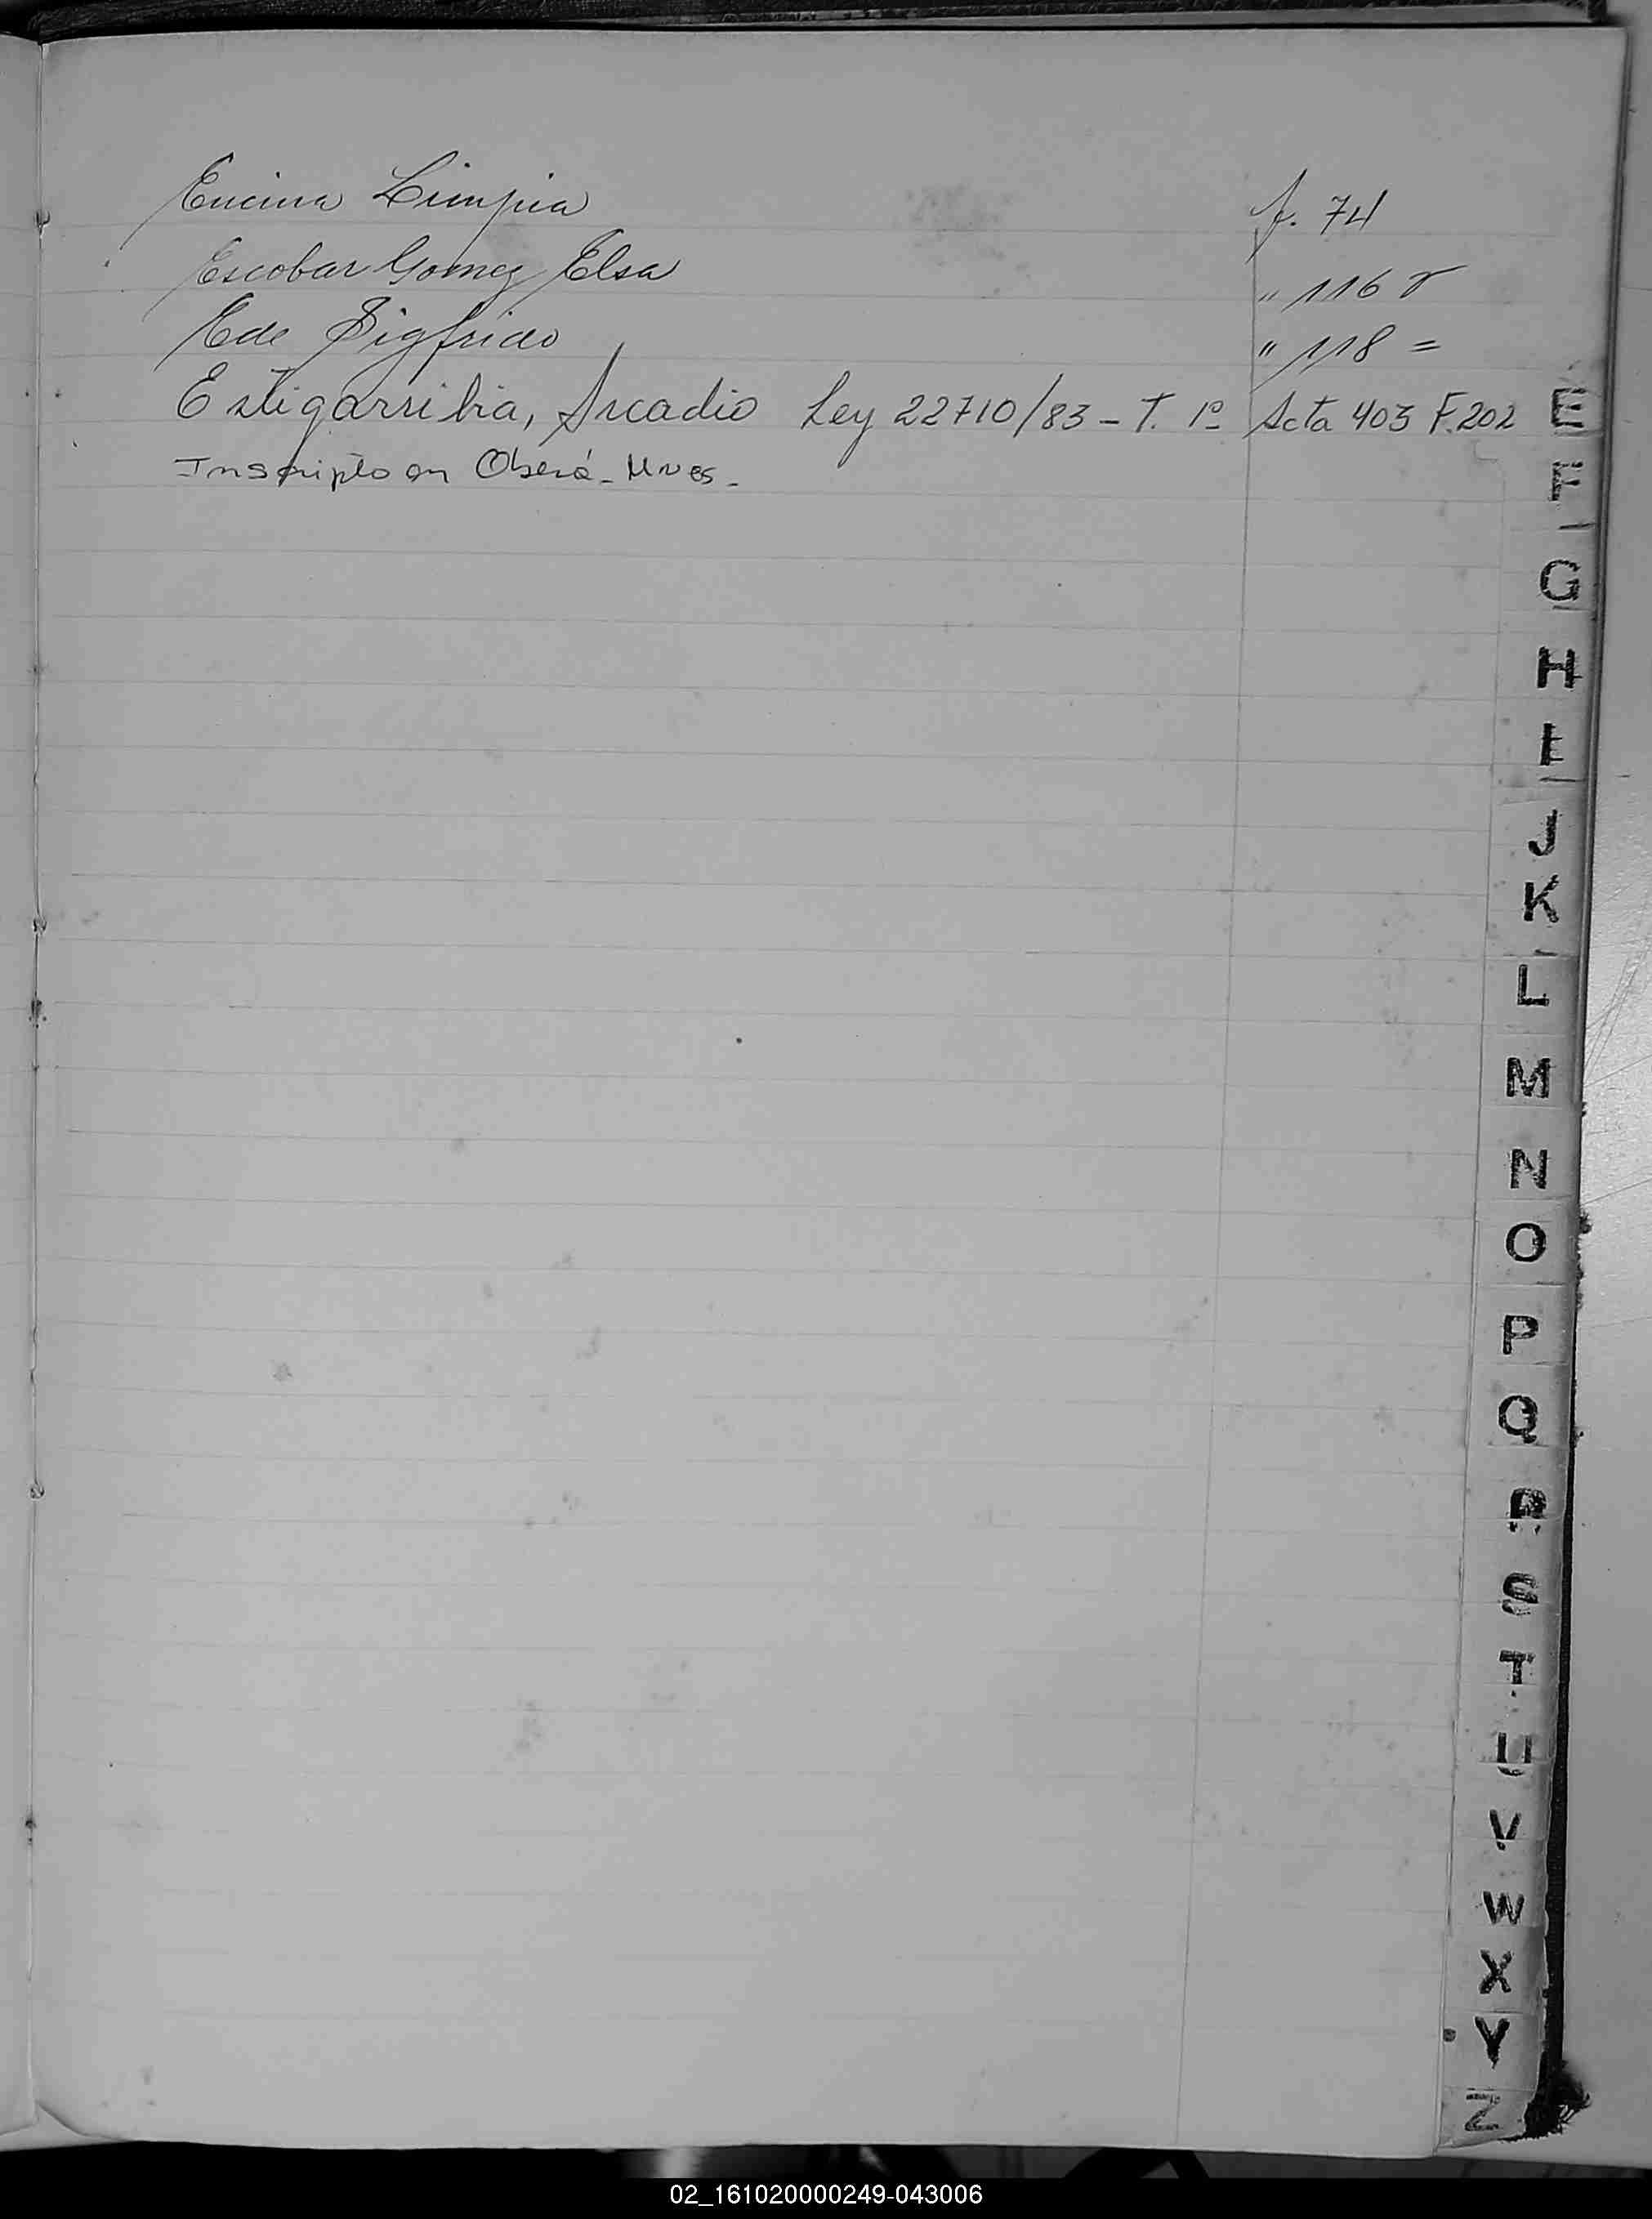 Encina Limpia f. 74
Escobar Gomez Elsa " 116
Ede Sigfrido " 118 =
Estigarribia, Arcadio Ley 22710/83 - T. 1º Acta 403 F. 202
Inscripto en Oberá - Mnes -
E
F
G
H
I
J
K
L
M
N
O
P
Q
R
S
T
U
V
W
X
Y
Z
02_161020000249-043006